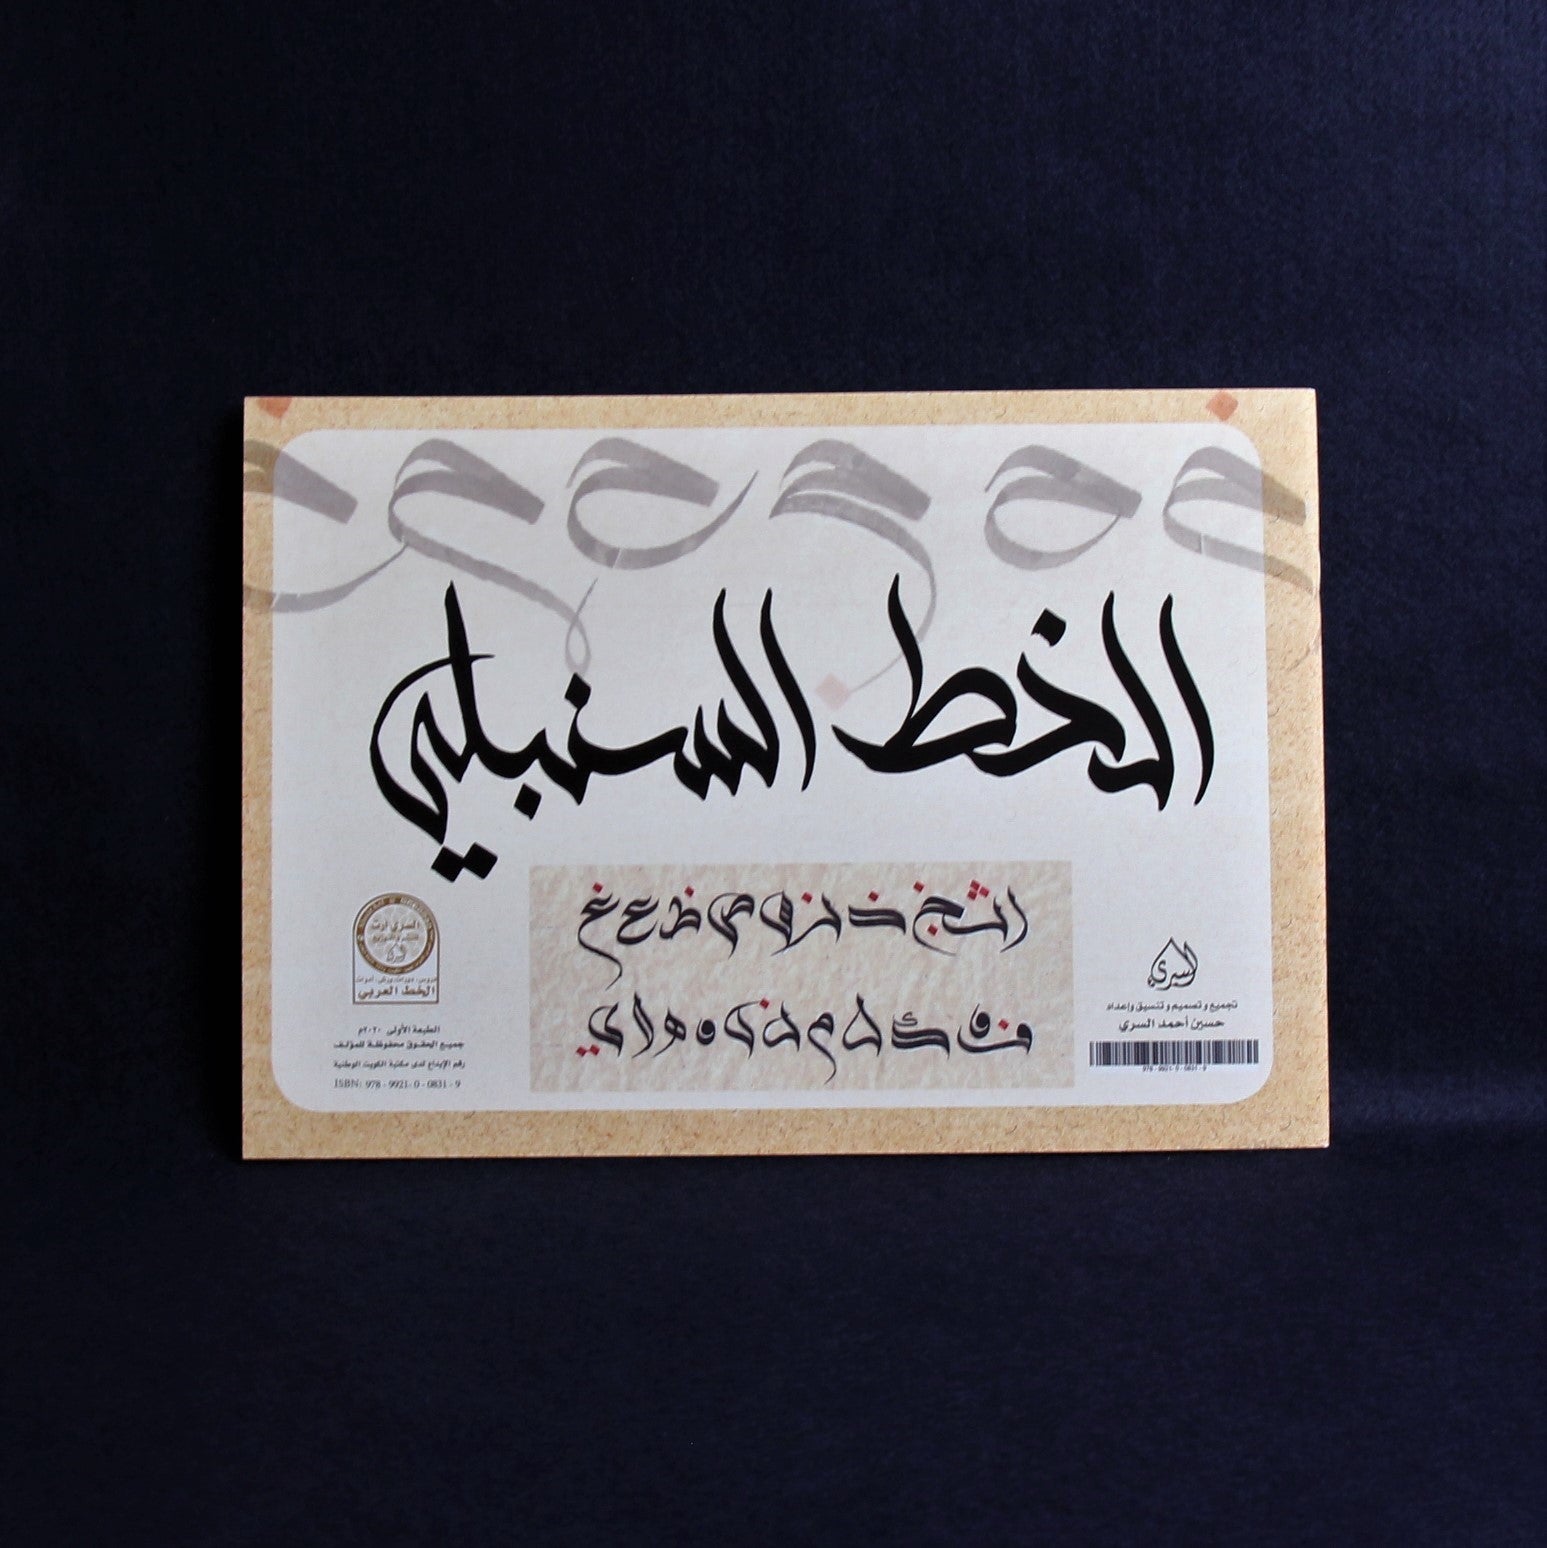 الخط السنبلي
ا ث خ ذ ز و ص ظ ع غ
ف ق ك ل م ن و ه لا ي
السري
تجميع و تصميم و تنسيق وإعداد
حسين أحمد السري
978 - 9921- 0 - 0831 - 9
السري آرت
دروس . دورات . ورش . أدوات
الخط العربي
الطبعة الأولى ٢٠٢٠م
جميع الحقوق محفوظة للمؤلف
رقم الإيداع لدى مكتبة الكويت الوطنية
ISBN: 978 - 9921- 0 - 0831 - 9